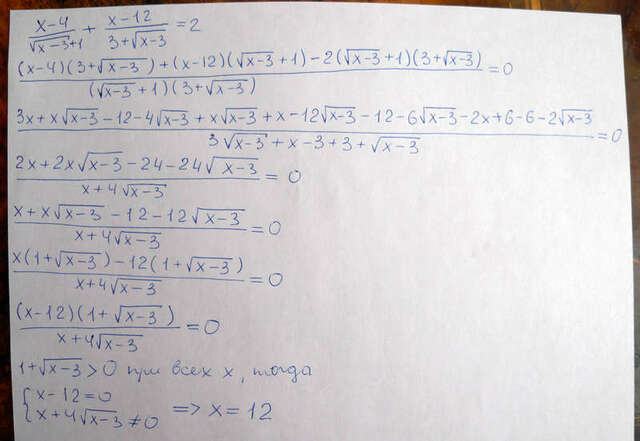 (x-4)/(√(x-3)+1) + (x-12)/(3+√(x-3)) = 2
((x-4)(3+√(x-3))+(x-12)(√(x-3)+1)-2(√(x-3)+1)(3+√(x-3)))/((√(x-3)+1)(3+√(x-3))) = 0
(3x+x√(x-3)-12-4√(x-3)+x√(x-3)+x-12√(x-3)-12-6√(x-3)-2x+6-6-2√(x-3))/(3√(x-3)+x-3+3+√(x-3)) = 0
(2x+2x√(x-3)-24-24√(x-3))/(x+4√(x-3)) = 0
(x+x√(x-3)-12-12√(x-3))/(x+4√(x-3)) = 0
(x(1+√(x-3))-12(1+√(x-3)))/(x+4√(x-3)) = 0
((x-12)(1+√(x-3)))/(x+4√(x-3)) = 0
1+√(x-3) > 0 при всех x, тогда
{ x-12=0
x+4√(x-3) ≠ 0 => x = 12